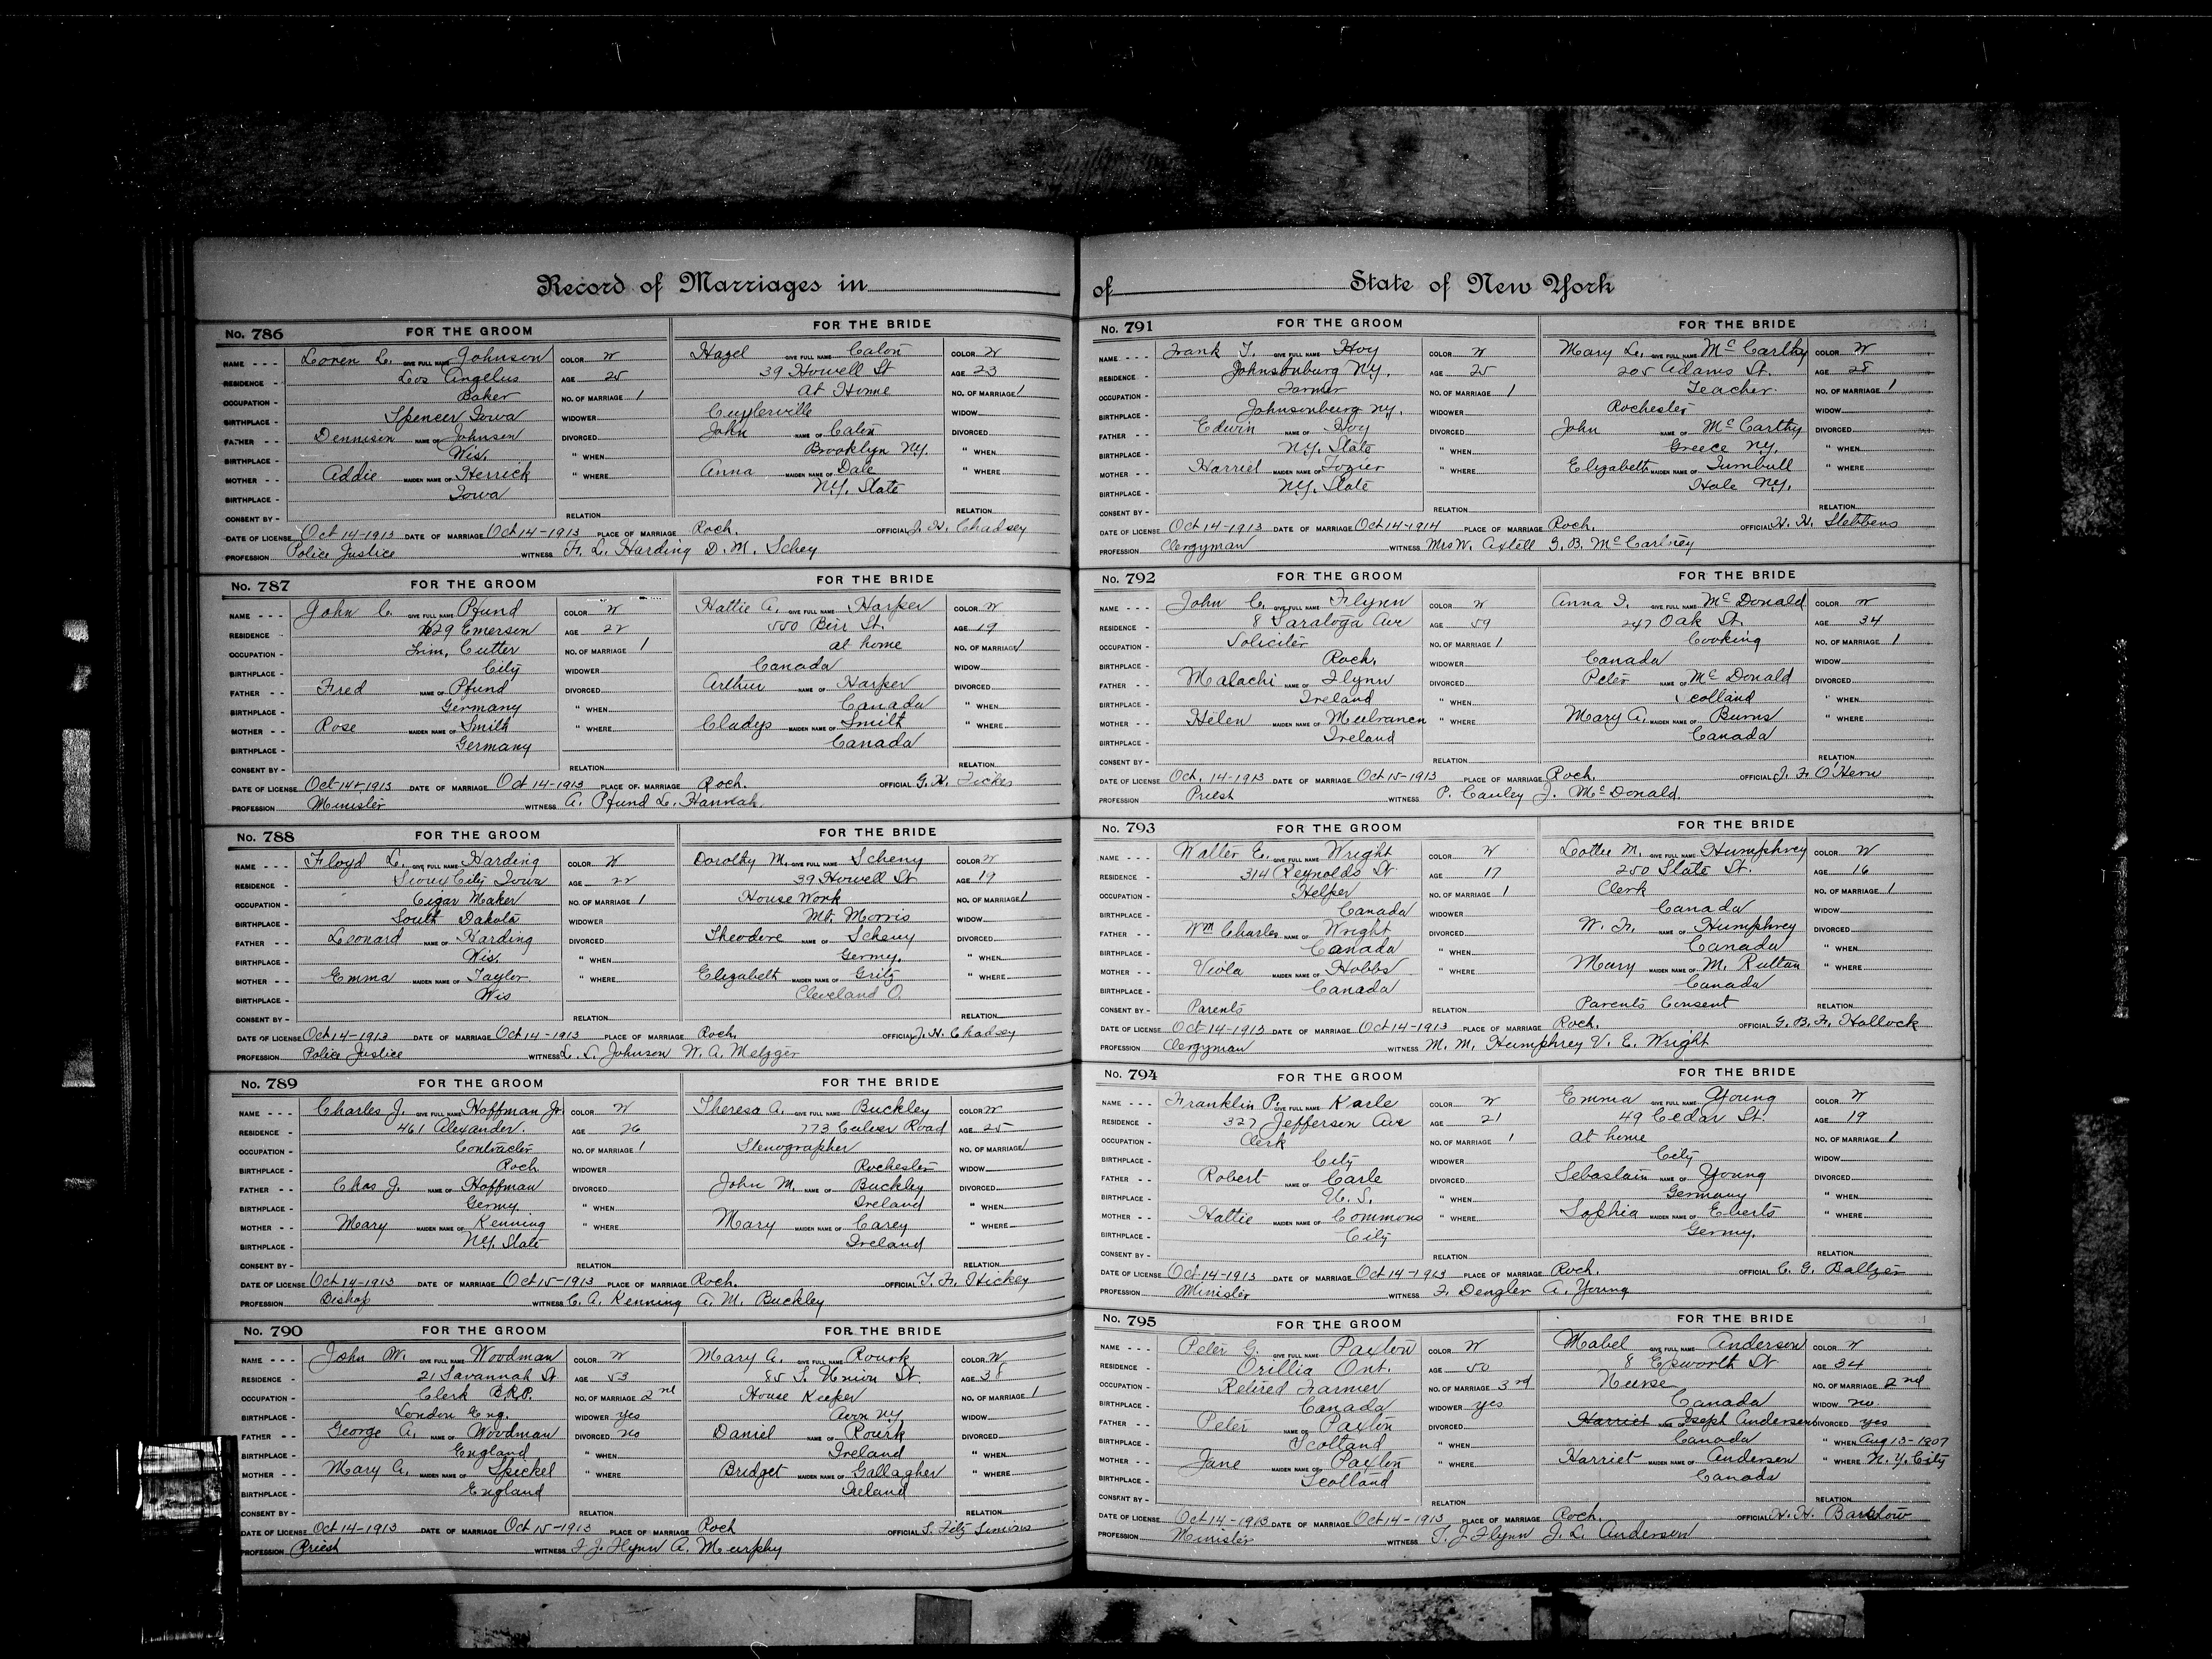 Record of Marriages in
No. 786 FOR THE GROOM FOR THE BRIDE
NAME - - - Loren L. GIVE FULL NAME Johnson COLOR W Hazel GIVE FULL NAME Calon COLOR W
RESIDENCE - Los Angelus AGE 25 39 Howell St AGE 23
OCCUPATION - Baker NO. OF MARRIAGE 1 At Home NO. OF MARRIAGE 1
BIRTHPLACE - Spencer Iowa WIDOWER Cuylerville WIDOW
FATHER - - Dennison NAME OF Johnson DIVORCED John NAME OF Calon DIVORCED
BIRTHPLACE - Wis. " WHEN Brooklyn N.Y. " WHEN
MOTHER - - Addie MAIDEN NAME OF Herrick " WHERE Anna MAIDEN NAME OF Dale " WHERE
BIRTHPLACE - Iowa N.Y. State
CONSENT BY - RELATION RELATION
DATE OF LICENSE Oct 14-1913 DATE OF MARRIAGE Oct 14-1913 PLACE OF MARRIAGE Roch. OFFICIAL J. H. Chadsey
PROFESSION Police Justice WITNESS F. L. Harding D. M. Schey
No. 787 FOR THE GROOM FOR THE BRIDE
NAME - - - John C. GIVE FULL NAME Pfund COLOR W Hattie A. GIVE FULL NAME Harper COLOR W
RESIDENCE - 629 Emerson AGE 22 550 Birr St. AGE 19
OCCUPATION - Trim. Cutter NO. OF MARRIAGE 1 at home NO. OF MARRIAGE 1
BIRTHPLACE - City WIDOWER Canada WIDOW
FATHER - - Fred NAME OF Pfund DIVORCED Arthur NAME OF Harper DIVORCED
BIRTHPLACE - Germany " WHEN Canada " WHEN
MOTHER - - Rose MAIDEN NAME OF Smith " WHERE Gladys MAIDEN NAME OF Smith " WHERE
BIRTHPLACE - Germany Canada
CONSENT BY - RELATION RELATION
DATE OF LICENSE Oct-14-1913 DATE OF MARRIAGE Oct 14-1913 PLACE OF MARRIAGE Roch. OFFICIAL G. H.
PROFESSION Minister WITNESS A. Pfund L. Hannah.
No. 788 FOR THE GROOM FOR THE BRIDE
NAME - - - Floyd L. GIVE FULL NAME Harding COLOR W Dorothy M. GIVE FULL NAME Scheny COLOR W
RESIDENCE - Sioux City Iowa AGE 22 39 Howell St AGE 19
OCCUPATION - Cigar Maker NO. OF MARRIAGE 1 House Work NO. OF MARRIAGE 1
BIRTHPLACE - South Dakota WIDOWER Mt. Morris WIDOW
FATHER - - Leonard NAME OF Harding DIVORCED Theodore NAME OF Scheny DIVORCED
BIRTHPLACE - Wis. " WHEN Germy. " WHEN
MOTHER - - Emma MAIDEN NAME OF Taylor. " WHERE Elizabeth MAIDEN NAME OF Gritz " WHERE
BIRTHPLACE - Wis Cleveland O.
CONSENT BY - RELATION RELATION
DATE OF LICENSE Oct 14-1913 DATE OF MARRIAGE Oct 14-1913 PLACE OF MARRIAGE Roch. OFFICIAL J. H. Chadsey
PROFESSION Police Justice WITNESS L. L. Johnson W. A. Metzger
No. 789 FOR THE GROOM FOR THE BRIDE
NAME - - - Charles J. GIVE FULL NAME Hoffman Jr. COLOR W Theresa A. GIVE FULL NAME Buckley COLOR W
RESIDENCE - 461 Alexander. AGE 26 773 Culver Road AGE 25
OCCUPATION - Contractor NO. OF MARRIAGE 1 Stenographer NO. OF MARRIAGE 1
BIRTHPLACE - Roch WIDOWER Rochester WIDOW
FATHER - - Chas J. NAME OF Hoffman DIVORCED John M. NAME OF Buckley DIVORCED
BIRTHPLACE - Germy. " WHEN Ireland " WHEN
MOTHER - - Mary MAIDEN NAME OF Kenning " WHERE Mary MAIDEN NAME OF Carey " WHERE
BIRTHPLACE - N.Y. State Ireland
CONSENT BY - RELATION RELATION
DATE OF LICENSE Oct 14-1913 DATE OF MARRIAGE Oct 15-1913 PLACE OF MARRIAGE Roch. OFFICIAL T. F. Hickey
PROFESSION Bishop WITNESS C. A. Kenning A. M. Buckley
No. 790 FOR THE GROOM FOR THE BRIDE
NAME - - - John W. GIVE FULL NAME Woodman COLOR W Mary A. GIVE FULL NAME Rourk COLOR W
RESIDENCE - 21 Savannah St AGE 53 85 S. Union St. AGE 38
OCCUPATION - Clerk B.R.P. NO. OF MARRIAGE 2nd House Keeper NO. OF MARRIAGE 1
BIRTHPLACE - London Eng. WIDOWER yes Avon N.Y. WIDOW
FATHER - - George A. NAME OF Woodman DIVORCED no Daniel NAME OF Rourk DIVORCED
BIRTHPLACE - England " WHEN Ireland " WHEN
MOTHER - - Mary A. MAIDEN NAME OF Speckel " WHERE Bridget MAIDEN NAME OF Gallagher " WHERE
BIRTHPLACE - England Ireland
CONSENT BY - RELATION RELATION
DATE OF LICENSE Oct 14-1913 DATE OF MARRIAGE Oct 15-1913 PLACE OF MARRIAGE Roch OFFICIAL S. Fitz Simons
PROFESSION Priest WITNESS F. J. Flynn A. Murphy
of State of New York
No. 791 FOR THE GROOM FOR THE BRIDE
NAME - - - Frank T. GIVE FULL NAME Hoy COLOR W Mary L. GIVE FULL NAME McCarthy COLOR W
RESIDENCE - Johnsonburg N.Y. AGE 25 205 Adams St. AGE 28
OCCUPATION - Farmer NO. OF MARRIAGE 1 Teacher NO. OF MARRIAGE 1
BIRTHPLACE - Johnsonburg N.Y. WIDOWER Rochester WIDOW
FATHER - - Edwin NAME OF Hoy DIVORCED John NAME OF McCarthy DIVORCED
BIRTHPLACE - N.Y. State " WHEN Greece N.Y. " WHEN
MOTHER - - Harriet MAIDEN NAME OF Tozier " WHERE Elizabeth MAIDEN NAME OF Turnbull " WHERE
BIRTHPLACE - N.Y. State Hale N.Y.
CONSENT BY - RELATION RELATION
DATE OF LICENSE Oct 14-1913 DATE OF MARRIAGE Oct 14-1914 PLACE OF MARRIAGE Roch. OFFICIAL H. H. Stebbens
PROFESSION Clergyman WITNESS Mrs W. Axtell G. B. McCartney
No. 792 FOR THE GROOM FOR THE BRIDE
NAME - - - John C. GIVE FULL NAME Flynn COLOR W Anna I. GIVE FULL NAME McDonald COLOR W
RESIDENCE - 8 Saratoga Ave AGE 59 247 Oak St. AGE 34
OCCUPATION - Soliciter NO. OF MARRIAGE 1 Cooking NO. OF MARRIAGE 1
BIRTHPLACE - Roch. WIDOWER Canada WIDOW
FATHER - - Malachi NAME OF Flynn DIVORCED Peter NAME OF McDonald DIVORCED
BIRTHPLACE - Ireland " WHEN Scotland " WHEN
MOTHER - - Helen MAIDEN NAME OF Mulranen " WHERE Mary A. MAIDEN NAME OF Burns " WHERE
BIRTHPLACE - Ireland Canada
CONSENT BY - RELATION RELATION
DATE OF LICENSE Oct. 14-1913 DATE OF MARRIAGE Oct 15-1913 PLACE OF MARRIAGE Roch. OFFICIAL J. F. O'Hern
PROFESSION Priest WITNESS P. Cauley J. McDonald.
No. 793 FOR THE GROOM FOR THE BRIDE
NAME - - - Walter E. GIVE FULL NAME Wright COLOR W Lottie M. GIVE FULL NAME Humphrey COLOR W
RESIDENCE - 314 Reynolds St AGE 17 250 State St. AGE 16
OCCUPATION - Helper NO. OF MARRIAGE 1 Clerk NO. OF MARRIAGE 1
BIRTHPLACE - Canada WIDOWER Canada WIDOW
FATHER - - Wm Charles NAME OF Wright DIVORCED W. H. NAME OF Humphrey DIVORCED
BIRTHPLACE - Canada " WHEN Canada " WHEN
MOTHER - - Viola MAIDEN NAME OF Hobbs " WHERE Mary MAIDEN NAME OF M. Ruttan " WHERE
BIRTHPLACE - Canada Canada
CONSENT BY - Parents RELATION Parents Consent RELATION
DATE OF LICENSE Oct-14-1913 DATE OF MARRIAGE Oct 14-1913 PLACE OF MARRIAGE Roch. OFFICIAL G. B. F. Hallock
PROFESSION Clergyman WITNESS M. M. Humphrey V. E. Wright
No. 794 FOR THE GROOM FOR THE BRIDE
NAME - - - Franklin P. GIVE FULL NAME Karle COLOR W Emma GIVE FULL NAME Young COLOR W
RESIDENCE - 327 Jefferson Ave AGE 21 49 Cedar St. AGE 19
OCCUPATION - Clerk NO. OF MARRIAGE 1 at home NO. OF MARRIAGE 1
BIRTHPLACE - City WIDOWER City WIDOW
FATHER - - Robert NAME OF Carle DIVORCED Sebastain NAME OF Young DIVORCED
BIRTHPLACE - U. S. " WHEN Germany " WHEN
MOTHER - - Hattie MAIDEN NAME OF Commons " WHERE Sophia MAIDEN NAME OF Eberts " WHERE
BIRTHPLACE - City Germy.
CONSENT BY - RELATION RELATION
DATE OF LICENSE Oct 14-1913 DATE OF MARRIAGE Oct 14-1913 PLACE OF MARRIAGE Roch. OFFICIAL C. G. Baltzer
PROFESSION Minister WITNESS F. Dengler A. Young
No. 795 FOR THE GROOM FOR THE BRIDE
NAME - - - Peter G. GIVE FULL NAME Paxton COLOR W Mabel GIVE FULL NAME Anderson COLOR W
RESIDENCE - Orillia Ont. AGE 50 8 Epworth St AGE 34
OCCUPATION - Retired Farmer NO. OF MARRIAGE 3rd Nurse NO. OF MARRIAGE 2nd
BIRTHPLACE - Canada WIDOWER yes Canada WIDOW no.
FATHER - - Peter NAME OF Paxton DIVORCED Harriet NAME OF Joseph Anderson DIVORCED yes
BIRTHPLACE - Scotland " WHEN Canada " WHEN Aug 13-1907
MOTHER - - Jane MAIDEN NAME OF Paxton " WHERE Harriet MAIDEN NAME OF Anderson " WHERE N.Y. City
BIRTHPLACE - Scotland Canada
CONSENT BY - RELATION RELATION
DATE OF LICENSE Oct 14-1913 DATE OF MARRIAGE Oct 14-1913 PLACE OF MARRIAGE Roch. OFFICIAL H. H. Barstow
PROFESSION Minister WITNESS T. J. Flynn J. L. Anderson